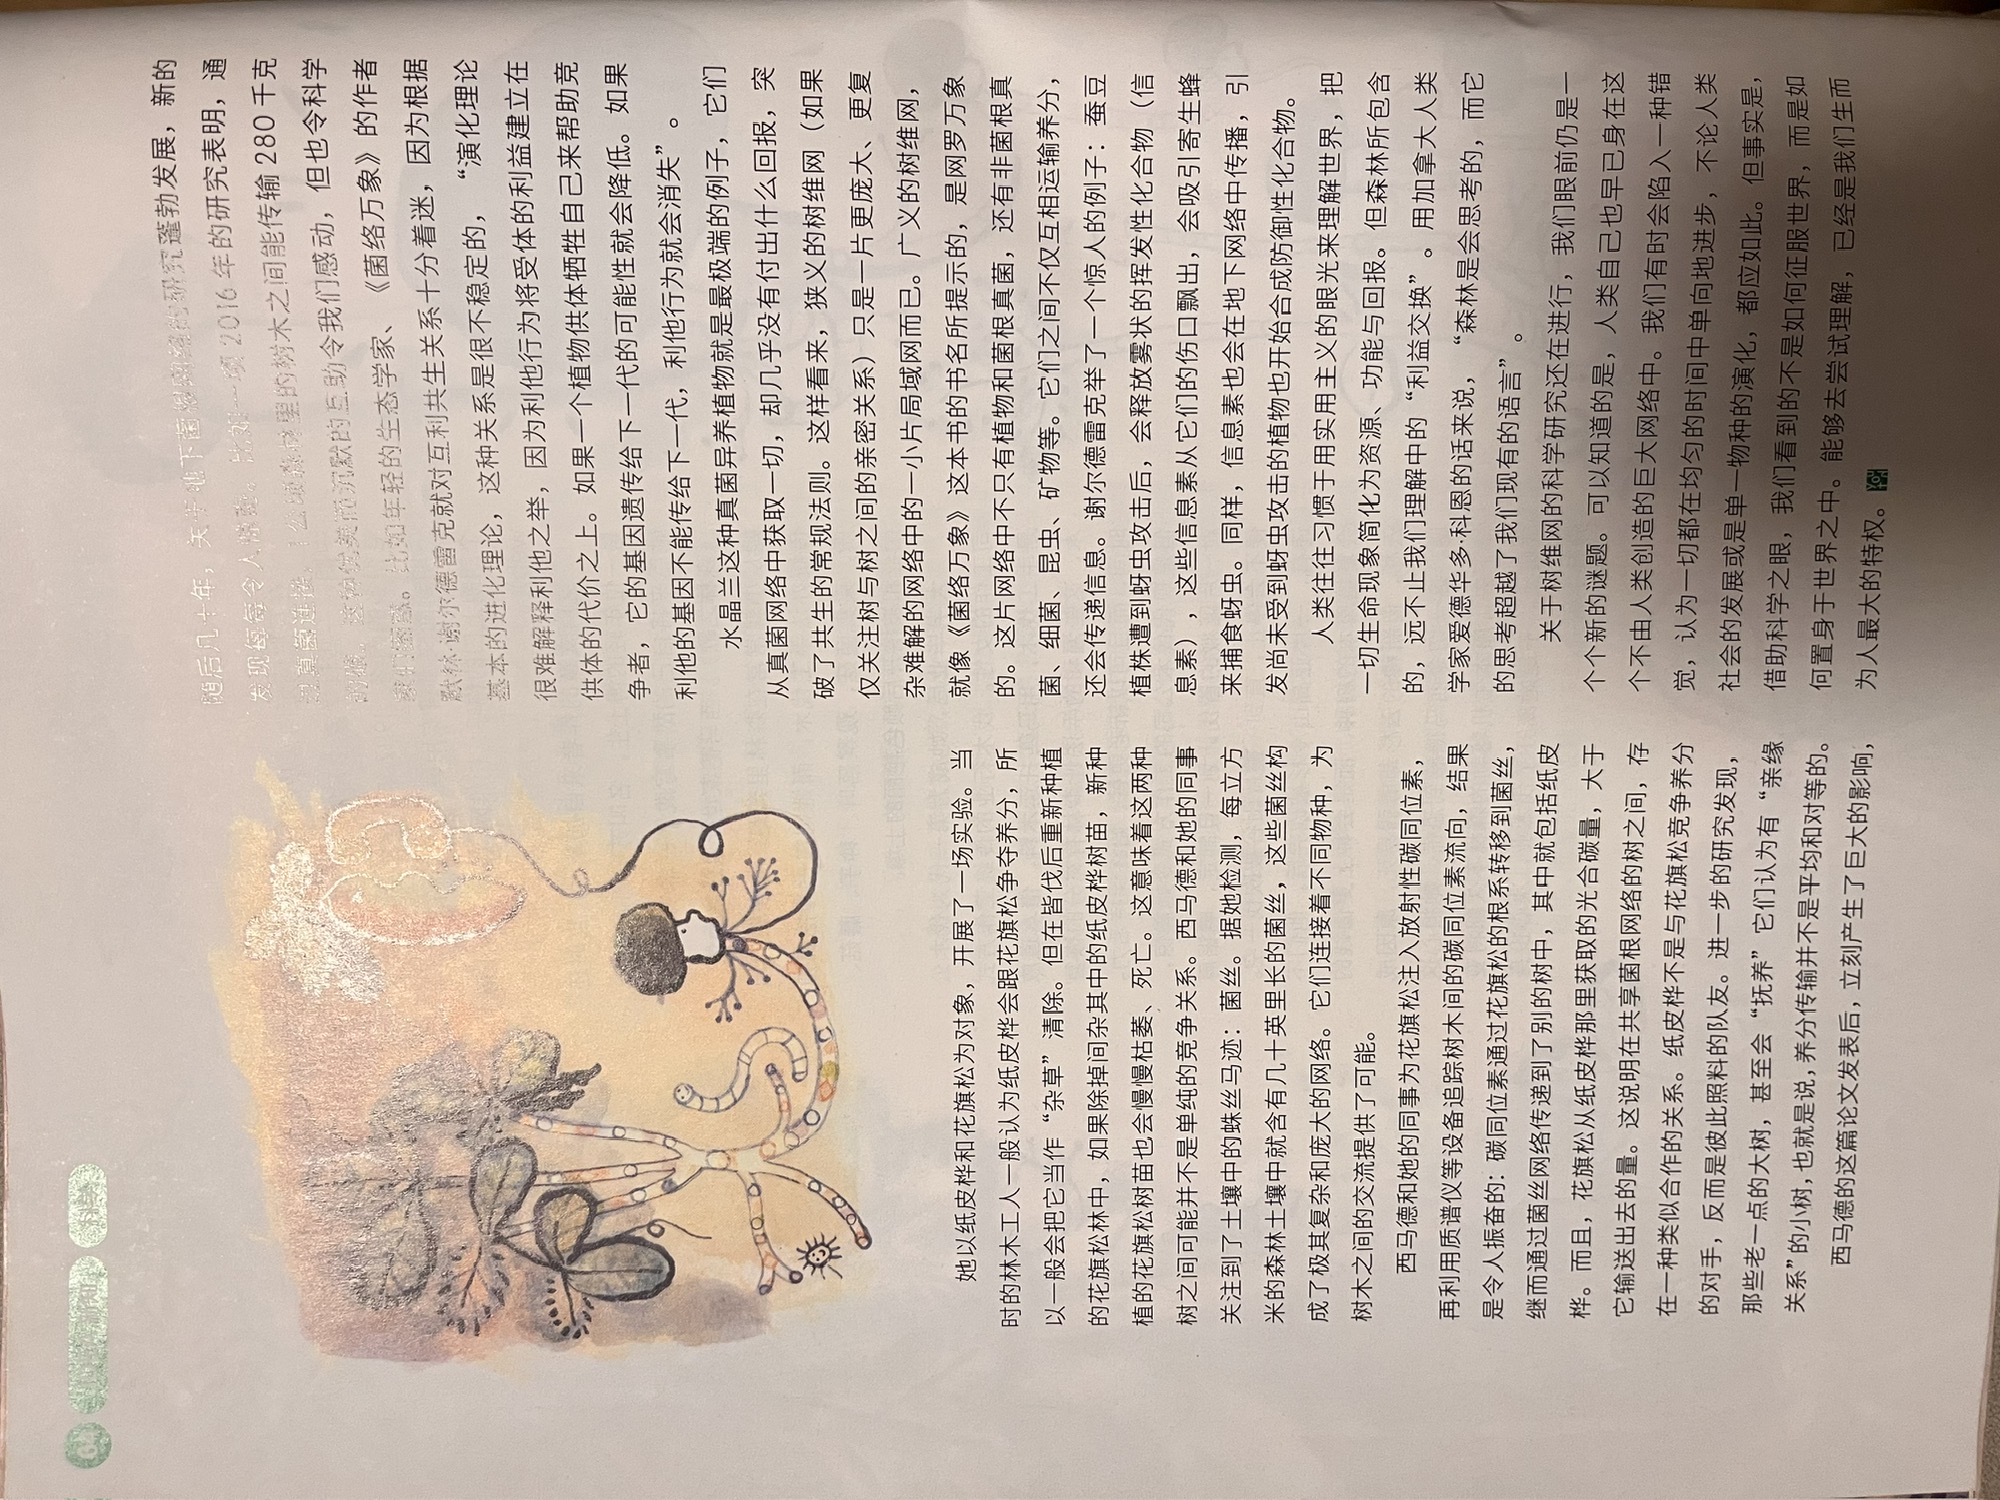 她以纸皮桦和花旗松为对象，开展了一场实验。当
时的林木工人一般认为纸皮桦会跟花旗松争夺养分，所
以一般会把它当作“杂草”清除。但在皆伐后重新种植
的花旗松林中，如果除掉间杂其中的纸皮桦树苗，新种
植的花旗松树苗也会慢慢枯萎、死亡。这意味着这两种
树之间可能并不是单纯的竞争关系。西马德和她的同事
关注到了土壤中的蛛丝马迹：菌丝。据她检测，每立方
米的森林土壤中就含有几十英里长的菌丝，这些菌丝构
成了极其复杂和庞大的网络。它们连接着不同物种，为
树木之间的交流提供了可能。
西马德和她的同事为花旗松注入放射性碳同位素，
再利用质谱仪等设备追踪树木间的碳同位素流向，结果
是令人振奋的：碳同位素通过花旗松的根系转移到菌丝，
继而通过菌丝网络传递到了别的树中，其中就包括纸皮
桦。而且，花旗松从纸皮桦那里获取的光合碳量，大于
它输送出去的量。这说明在共享菌根网络的树之间，存
在一种类似合作的关系。纸皮桦不是与花旗松竞争养分
的对手，反而是彼此照料的队友。进一步的研究发现，
那些老一点的大树，甚至会“抚养”它们认为有“亲缘
关系”的小树，也就是说，养分传输并不是平均和对等的。
西马德的这篇论文发表后，立刻产生了巨大的影响，
随后几十年，关于地下菌根网络的研究蓬勃发展，新的
发现每每令人惊叹。比如一项 2016 年的研究表明，通
过真菌连接，森林里的树木之间能传输 280 千克
的碳。这种优美而沉默的互助令我们感动，但也令科学
家们困惑。比如年轻的生态学家、《菌络万象》的作者
默林·谢尔德雷克就对互利共生关系十分着迷，因为根据
基本的进化理论，这种关系是很不稳定的，“演化理论
很难解释利他之举，因为利他行为将受体的利益建立在
供体的代价之上。如果一个植物供体牺牲自己来帮助竞
争者，它的基因遗传给下一代的可能性就会降低。如果
利他的基因不能传给下一代，利他行为就会消失”。
水晶兰这种真菌异养植物就是最极端的例子，它们
从真菌网络中获取一切，却几乎没有付出什么回报，突
破了共生的常规法则。这样看来，狭义的树维网（如果
仅关注树与树之间的亲密关系）只是一片更庞大、更复
杂难解的网络中的一小片局域网而已。广义的树维网，
就像《菌络万象》这本书的书名所提示的，是网罗万象
的。这片网络中不只有植物和菌根真菌，还有非菌根真
菌、细菌、昆虫、矿物等。它们之间不仅互相运输养分，
还会传递信息。谢尔德雷克举了一个惊人的例子：蚕豆
植株遭到蚜虫攻击后，会释放雾状的挥发性化合物（信
息素），这些信息素从它们的伤口飘出，会吸引寄生蜂
来捕食蚜虫。同样，信息素也会在地下网络中传播，引
发尚未受到蚜虫攻击的植物也开始合成防御性化合物。
人类往往习惯于用实用主义的眼光来理解世界，把
一切生命现象简化为资源、功能与回报。但森林所包含
的，远不止我们理解中的“利益交换”。用加拿大人类
学家爱德华多·科恩的话来说，“森林是会思考的，而它
的思考超越了我们现有的语言”。
关于树维网的科学研究还在进行，我们眼前仍是一
个个新的谜题。可以知道的是，人类自己也早已身在这
个不由人类创造的巨大网络中。我们有时会陷入一种错
觉，认为一切都在均匀的时间中单向地进步，不论人类
社会的发展或是单一物种的演化，都应如此。但事实是，
借助科学之眼，我们看到的不是如何征服世界，而是如
何置身于世界之中。能够去尝试理解，已经是我们生而
为人最大的特权。